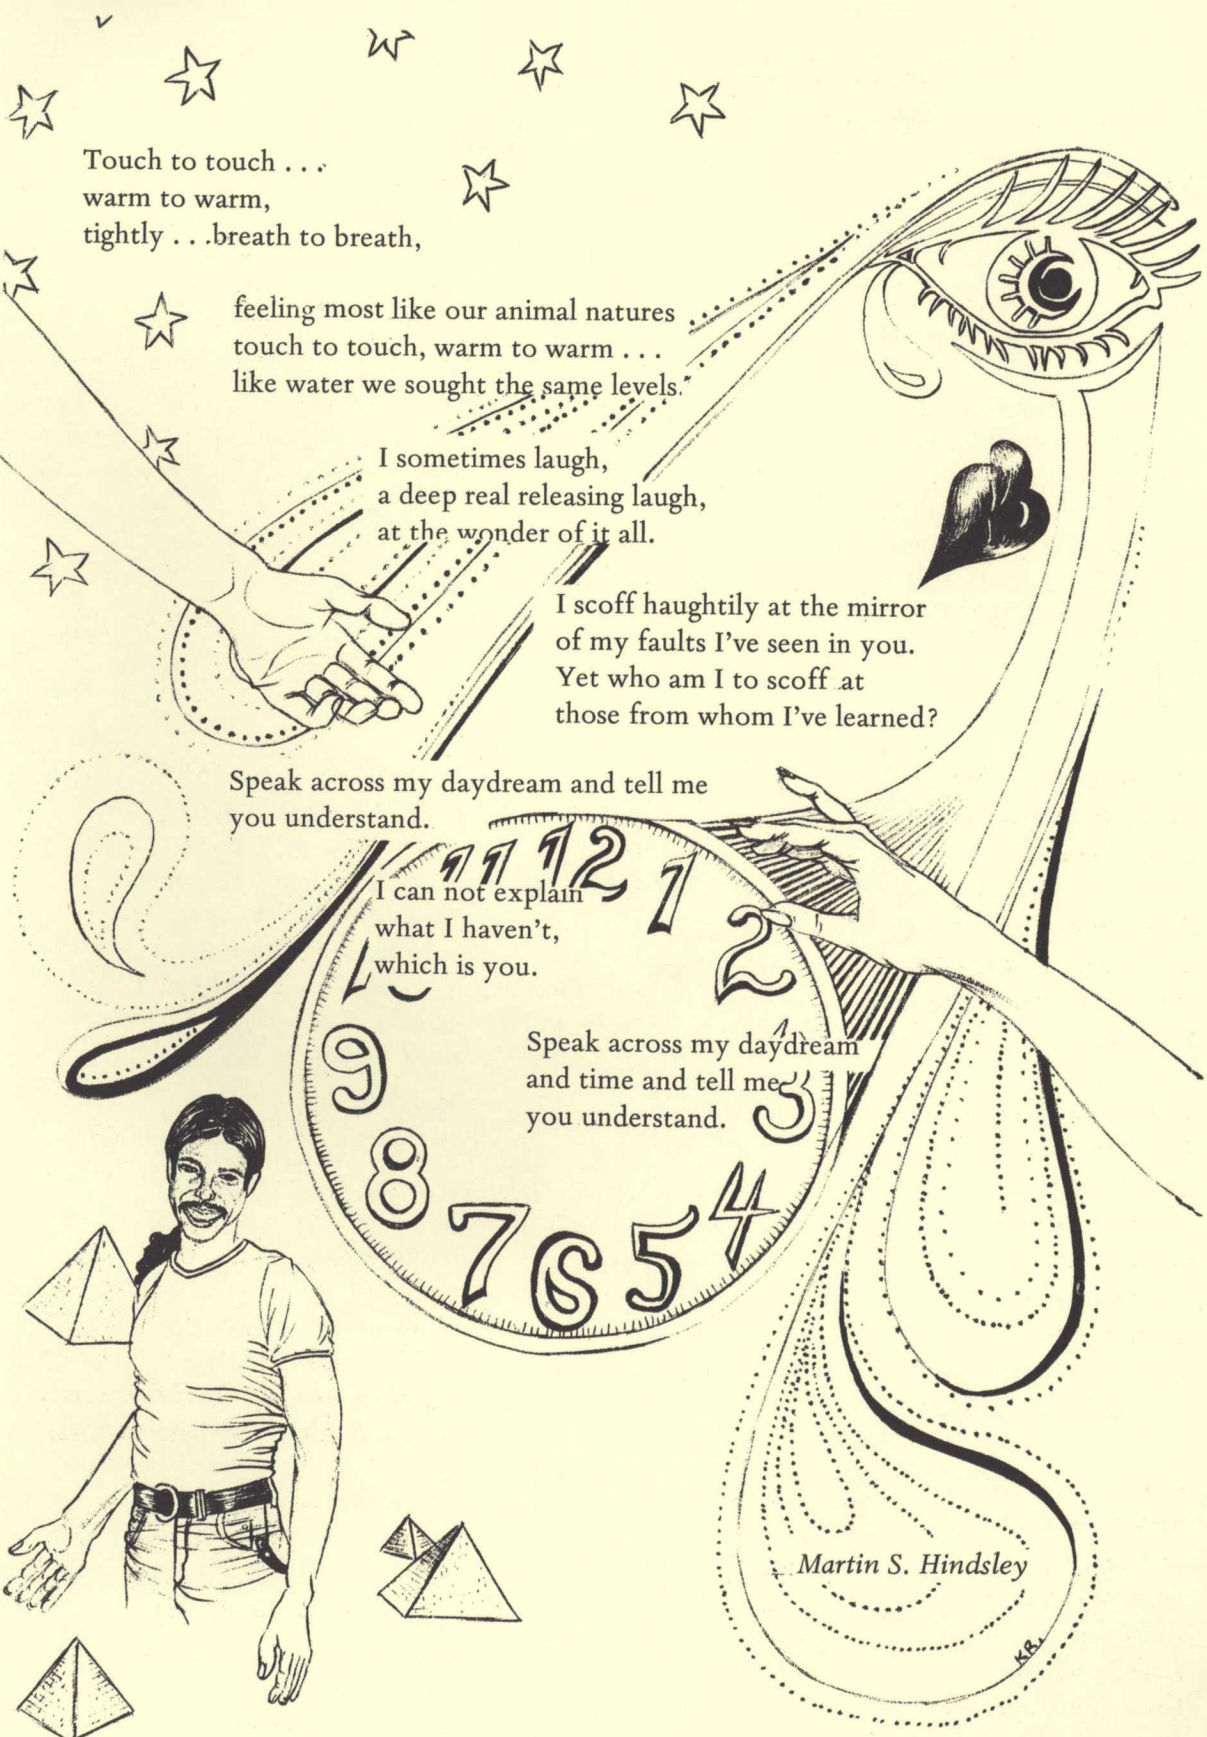 Touch to touch . . .
warm to warm,
tightly . . .breath to breath,
feeling most like our animal natures
touch to touch, warm to warm . . .
like water we sought the same levels.
I sometimes laugh,
a deep real releasing laugh,
at the wonder of it all.
I scoff haughtily at the mirror
of my faults I've seen in you.
Yet who am I to scoff at
those from whom I've learned?
Speak across my daydream and tell me
you understand.
11 12 1
I can not explain
what I haven't,
which is you.
2
9
Speak across my daydream
and time and tell me
you understand.
3
8
7 6 5 4
Martin S. Hindsley
KR.